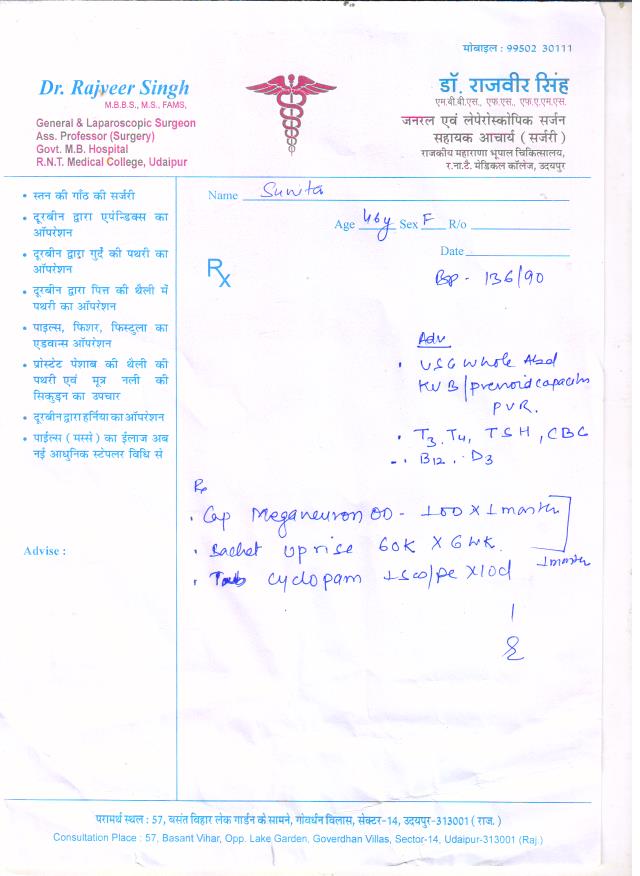 मोबाइल : 99502 30111
Dr. Rajveer Singh
M.B.B.S., M.S., FAMS,
General & Laparoscopic Surgeon
Ass. Professor (Surgery)
Govt. M.B. Hospital
R.N.T. Medical College, Udaipur
डॉ. राजवीर सिंह
एम.बी.बी.एस., एफ.एस., एफ.ए.एम.एस.
जनरल एवं लेपेरोस्कोपिक सर्जन
सहायक आचार्य ( सर्जरी )
राजकीय महाराणा भूपाल चिकित्सालय,
र.ना.टै. मेडिकल कॉलेज, उदयपुर
• स्तन की गाँठ की सर्जरी
• दूरबीन द्वारा एपेन्डिक्स का
ऑपरेशन
• दूरबीन द्वारा गुर्दे की पथरी का
ऑपरेशन
• दूरबीन द्वारा पित्त की थैली में
पथरी का ऑपरेशन
• पाइल्स, फिशर, फिस्टुला का
एडवान्स ऑपरेशन
• प्रोस्टेट पेशाब की थैली की
पथरी एवं मूत्र नली की
सिकुड़न का उपचार
• दूरबीन द्वारा हर्निया का ऑपरेशन
• पाईल्स ( मस्से ) का ईलाज अब
नई आधुनिक स्टेपलर विधि से
Advise :
Name Sunita
Age 46y Sex F R/o
Date
Rx
BP - 136/90
Adv
• USG whole Abd
KUB / prevoid capacity
PVR.
• T3, T4, TSH, CBC
• B12, D3
Rx
• Cap Meganeuron OD - 1 OD X 1 month
• Sachet Uprise 60K X 6 wk.
1 month
• Tab Cyclopam 1 SOS/ X 10d
परामर्थ स्थल : 57, बसंत विहार लेक गार्डन के सामने, गोवर्धन विलास, सेक्टर-14, उदयपुर-313001 ( राज. )
Consultation Place : 57, Basant Vihar, Opp. Lake Garden, Goverdhan Villas, Sector-14, Udaipur-313001 (Raj.)